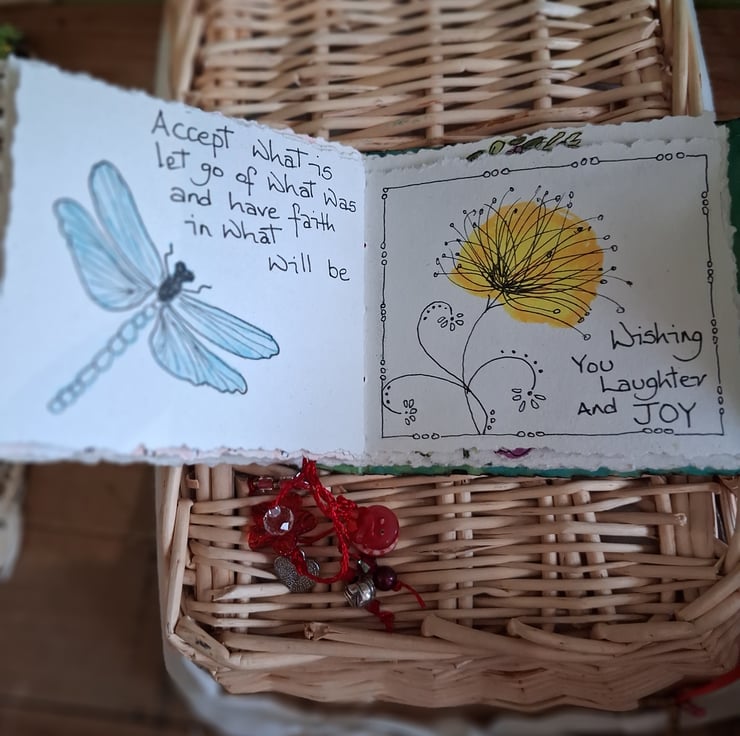 Accept what is
let go of what was
and have faith
in what
will be
Wishing
You
Laughter
And JOY